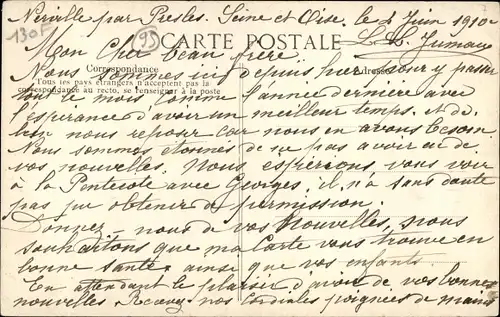 Nerville par Presles. Seine et Oise. le 4 Juin 1910
130F
95
CARTE POSTALE
Mon Cher Beau frère
Correspondance
Adresse
Tous les pays étrangers n'acceptent pas la
correspondance au recto, se renseigner à la poste
Nous sommes ici depuis hier pour y passer
le mois comme l'année dernière avec
l'espérance d'avoir un meilleur temps. et de
nous reposer car nous en avons besoin
Nous sommes étonnés de ne pas avoir eu de
vos nouvelles. Nous espérions vous voir
à la Pentecote avec Georges, il n'a sans doute
pas pu obtenir de permission.
Donnez-nous de vos nouvelles, nous
souhaitons que ma Carte vous trouve en
bonne santé ainsi que vos enfants.
En attendant le plaisir d'avoir de vos bonnes
nouvelles Recevez nos cordiales poignées de mains